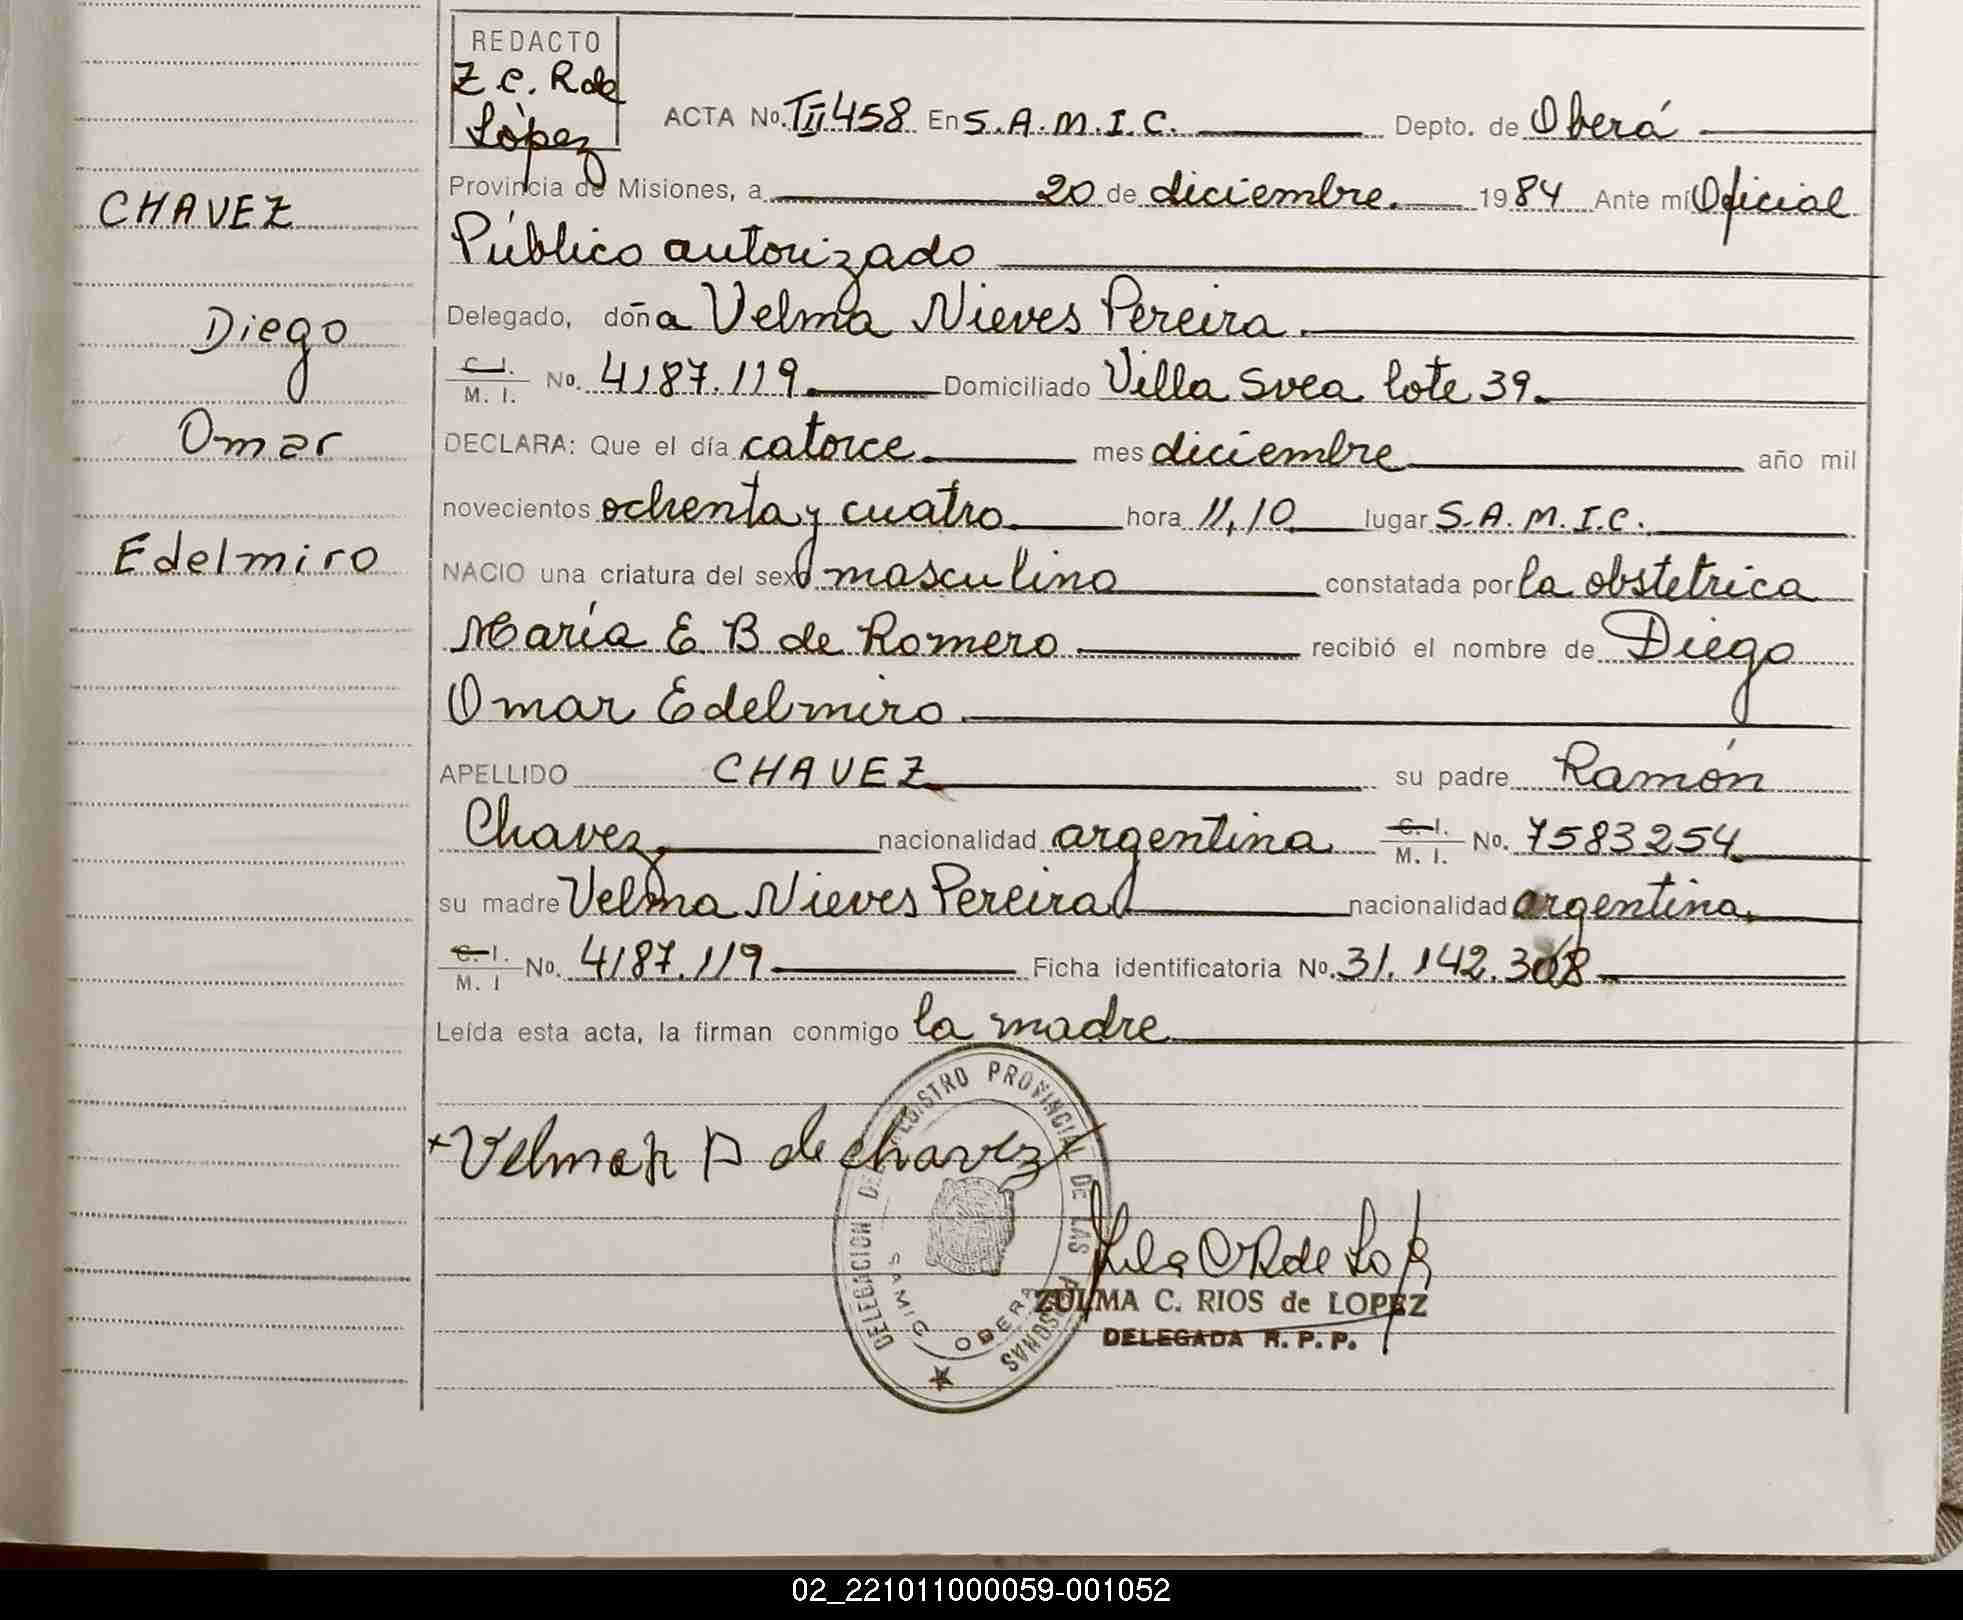 REDACTO
Z.C. R de
López
ACTA No. TII 458 En S.A.M.I.C. Depto. de Oberá
Provincia de Misiones, a 20 de diciembre. 1984 Ante mí Oficial
Público autorizado
Delegado, doña Velma Nieves Pereira.
C.I. M. I. No. 4187.119. Domiciliado Villa Svea lote 39.
DECLARA: Que el día catorce mes diciembre año mil
novecientos ochenta y cuatro hora 11,10 lugar S.A.M.I.C.
NACIO una criatura del sexo masculino constatada por la obstetrica
María E. B de Romero recibió el nombre de Diego
Omar Edelmiro
APELLIDO CHAVEZ su padre Ramón
Chavez nacionalidad argentina C.I. M. I. No. 7583254
su madre Velma Nieves Pereira nacionalidad argentina.
C.I. M. I No. 4187.119 Ficha identificatoria No. 31.142.308
Leída esta acta, la firman conmigo la madre
CHAVEZ
Diego
Omar
Edelmiro
de chavez
DELEGACION DEL REGISTRO PROVINCIAL DE LAS PERSONAS
SAMIC OBERA
ZULMA C. RIOS de LOPEZ
DELEGADA R. P. P.
02_221011000059-001052